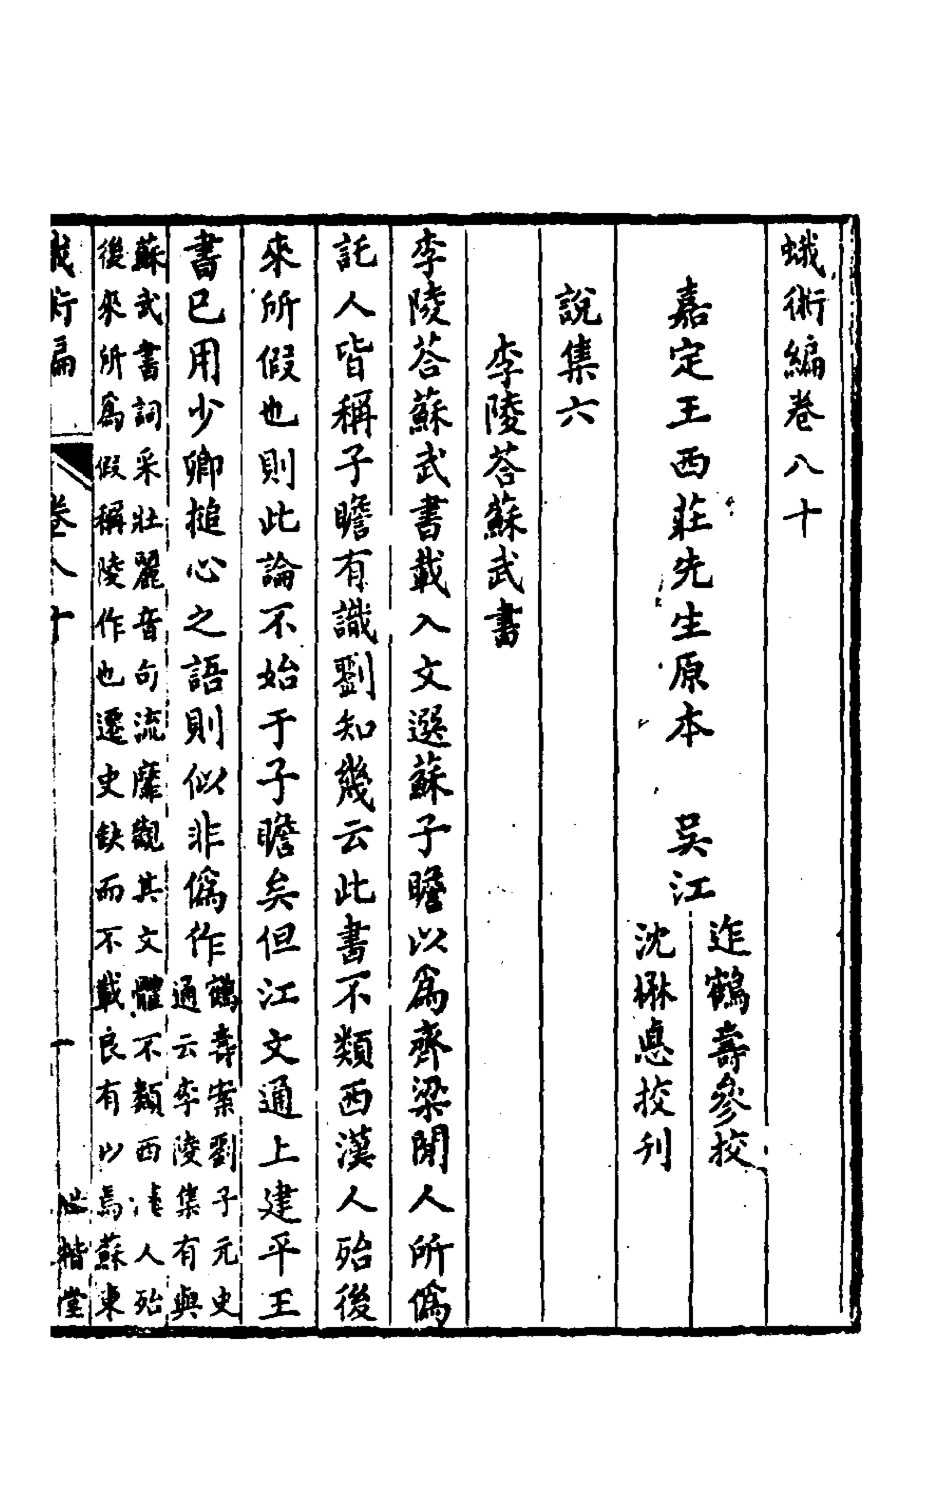 蛾術編卷八十
嘉定王西莊先生原本　吳江
迮鶴壽參挍
沈楙悳挍刊
說集六
李陵荅蘇武書
李陵荅蘇武書載入文選蘇子瞻以爲齊梁閒人所僞
託人皆稱子瞻有識劉知幾云此書不類西漢人殆後
來所假也則此論不始于子瞻矣但江文通上建平王
書已用少卿搥心之語則似非僞作
鶴壽案劉子元史
通云李陵集有與
蘇武書詞采壯麗音句流靡觀其文體不類西漢人殆
後來所爲假稱陵作也遷史缺而不載良有以焉蘇東
蛾術編　卷八十　一　世楷堂